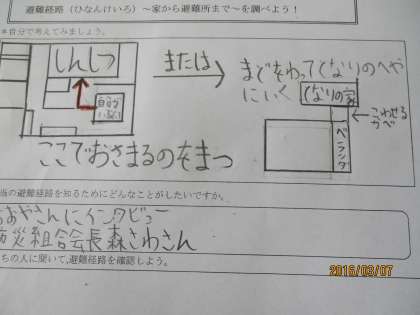 避難経路（ひなんけいろ）～家から避難所まで～を調べよう！
自分で考えてみましょう。
しんしつ
または
まどをわってとなりのへや
にいく
となりの家
自分
こわせる
かべ
ベランダ
ここでおさまるのをまつ
当の避難経路を知るためにどんなことがしたいですか。
おやさんにインタビュー
災組合会長森さわさん
ちの人に聞いて,避難経路を確認しよう。
2016/03/07